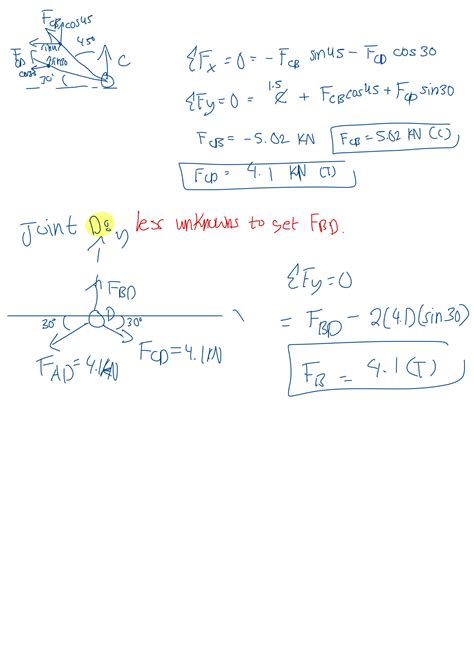 FCB cos45
45°
30°
C
ΣFx = 0 = - FCB sin45 - FCD cos30
ΣFy = 0 = 1.5 C + FCB cos45 + FCD sin30
FCB = -5.02 KN FCB = 5.02 KN (C)
FCD = 4.1 KN (T)
Joint D: less unknowns to get FBD.
y
FBD
D
30° 30°
FAD = 4.1KN FCD = 4.1KN
ΣFy = 0
= FBD - 2(4.1)(sin30)
FB = 4.1 (T)